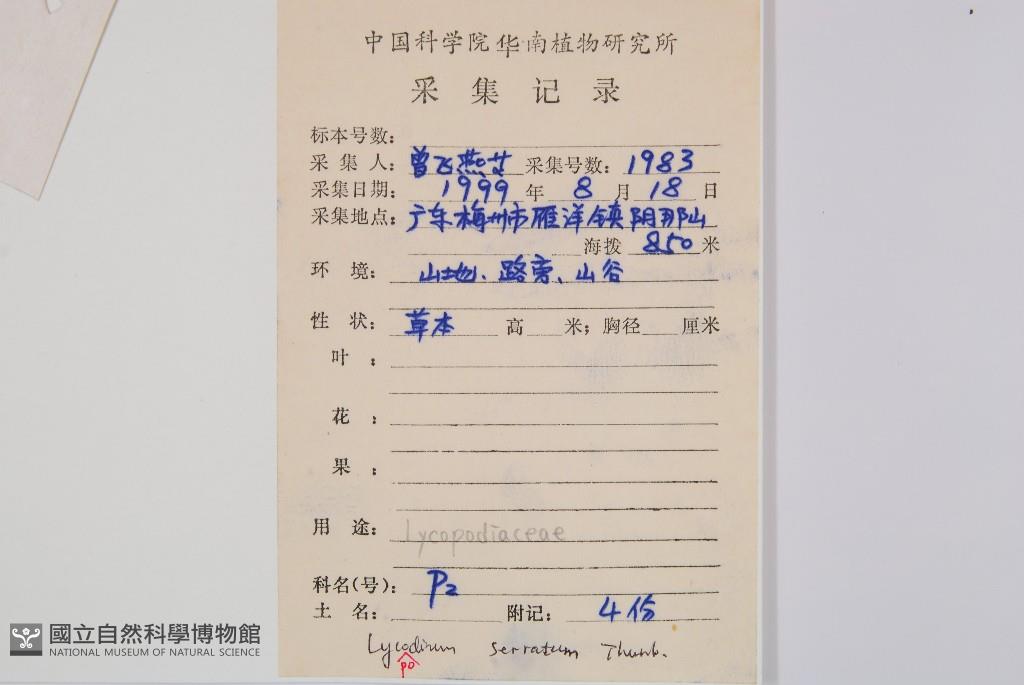 中国科学院华南植物研究所
采集记录
标本号数：
采集人：曾飞燕 采集号数：1983
采集日期：1999年8月18日
采集地点：广东梅州市雁洋镇阴那山
海拨 850 米
环境：山地、路旁、山谷
性状：草本 高 米；胸径 厘米
叶：
花：
果：
用途：Lycopodiaceae
科名(号)：P2
土名： 附记：4份
Lycodium serratum Thunb.
po
國立自然科學博物館
NATIONAL MUSEUM OF NATURAL SCIENCE